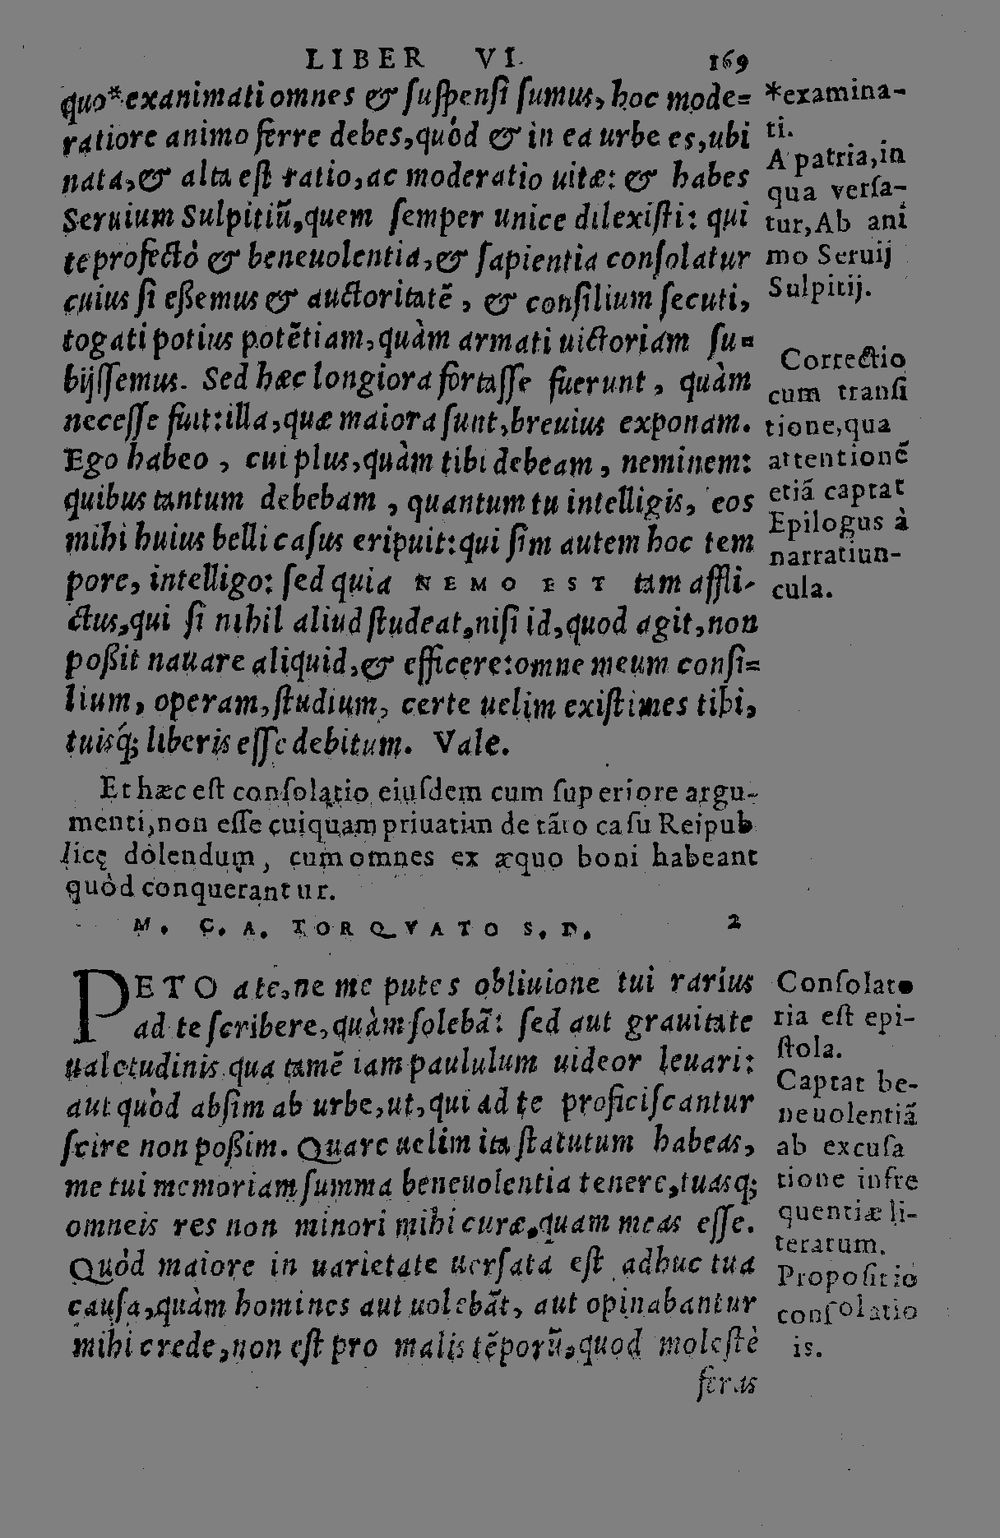 LIBER VI. 169
quo* exanimati omnes & ſuſpenſi ſumus, hoc mode=
ratiore animo ferre debes, quòd & in ea urbe es, ubi
nata, & alta eſt ratio, ac moderatio uitæ: & habes
Seruium Sulpitiũ, quem ſemper unice dilexiſti: qui
te profectò & beneuolentia, & ſapientia conſolatur
cuius ſi eßemus & auctoritatẽ, & conſilium ſecuti,
togati potius potẽtiam, quàm armati uictoriam ſu=
bijſſemus. Sed hæc longiora fortaſſe fuerunt, quàm
neceſſe fuit: illa, quæ maiora ſunt, breuius exponam.
Ego habeo, cui plus, quàm tibi debeam, neminem:
quibus tantum debebam, quantum tu intelligis, eos
mihi huius belli caſus eripuit: qui ſim autem hoc tem
pore, intelligo: ſed quia NEMO EST tam affli-
ctus, qui ſi nihil aliud ſtudeat, niſi id, quod agit, non
poßit nauare aliquid, & efficere: omne meum conſi=
lium, operam, ſtudium, certe uelim exiſtimes tibi,
tuisq́; liberis eſſe debitum. Vale.
*examina-
ti.
A patria, in
qua verſa-
tur, Ab ani
mo Seruij
Sulpitij.
Correctio
cum tranſi
tione, qua
attentionẽ
etiã captat
Epilogus à
narratiun-
cula.
Et hæc eſt conſolatio eiuſdem cum ſuperiore argu-
menti, non eſſe cuiquam priuatim de tãto caſu Reipub
licę dolendum, cum omnes ex æquo boni habeant
quòd conquerantur.
M. C. A. TORQVATO S. D. 2
PETO a te, ne me putes obliuione tui rarius
ad te ſcribere, quàm ſolebã: ſed aut grauitate
ualetudinis qua tamẽ iam paululum uideor leuari:
aut quòd abſim ab urbe, ut, qui ad te proficiſcantur
ſcire non poßim. Quare uelim ita ſtatutum habeas,
me tui memoriam ſumma beneuolentia tenere, tuasq;
omneis res non minori mihi curæ, quam meas eſſe.
Quòd maiore in uarietate uerſata eſt adhuc tua
cauſa, quàm homines aut uolebãt, aut opinabantur
mihi crede, non eſt pro malis tẽporũ, quod moleſtè
feras
Conſolato
ria eſt epi-
ſtola.
Captat be-
neuolentiã
ab excuſa
tione infre
quentiæ li-
terarum.
Propoſitio
conſolatio
is.